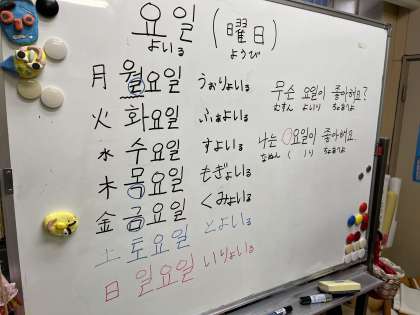 요일 (曜日)
よいる ようび
月 월요일 うぉりよいる
火 화요일 ふぁよいる
水 수요일 すよいる
木 목요일 もぎょいる
金 금요일 くみょいる
土 토요일 とよいる
日 일요일 いりょいる
무슨 요일이 좋아해요?
むすん よいり ちょあへよ
나는 ○요일이 좋아해요.
なぬん く いり ちょあへよ